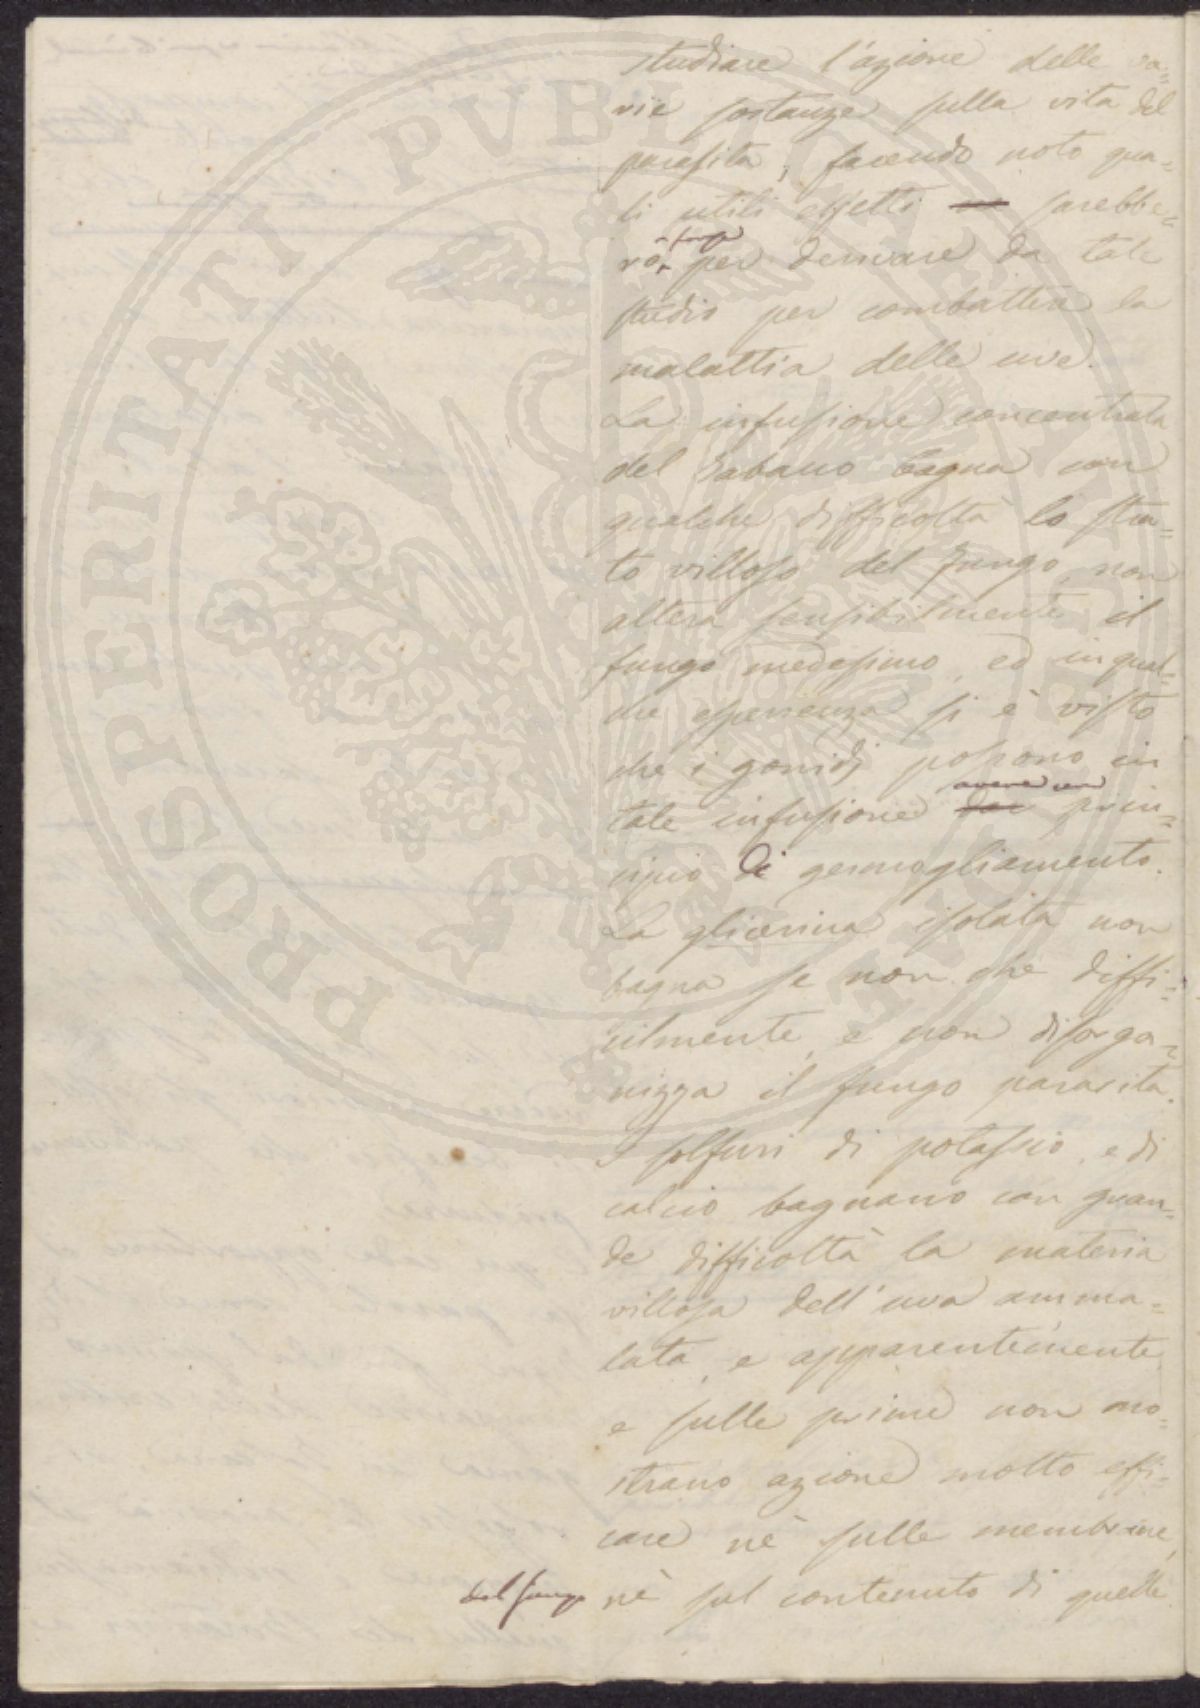 studiare l'azione delle va=
rie sostanze sulla vita del
parasita, facendo noto qua=
li utili effetti sarebbe=
ro forse per derivare da tale
studio per combattere la
malattia delle uve.
La infusione concentrata
del Tabacco bagna con
qualche difficoltà lo stra=
to villoso del fungo, non
altera sensibilmente il
fungo medesimo, ed in qual=
che esperienza si è visto
che i gonidj possono in
tale infusione avere un prin=
cipio di germogliamento.
La glicerina isolata non
bagna se non che diffi=
cilmente, e non disorga=
nizza il fungo parasita.
I solfuri di potassio, e di
calcio bagnano con gran=
de difficoltà la materia
villosa dell'uva amma=
lata, e apparentemente,
e sulle prime non mo=
strano azione molto effi=
cace nè sulle membrane,
nè sul contenuto di quelle
del fungo
PROSPERITATI PUBLICAE